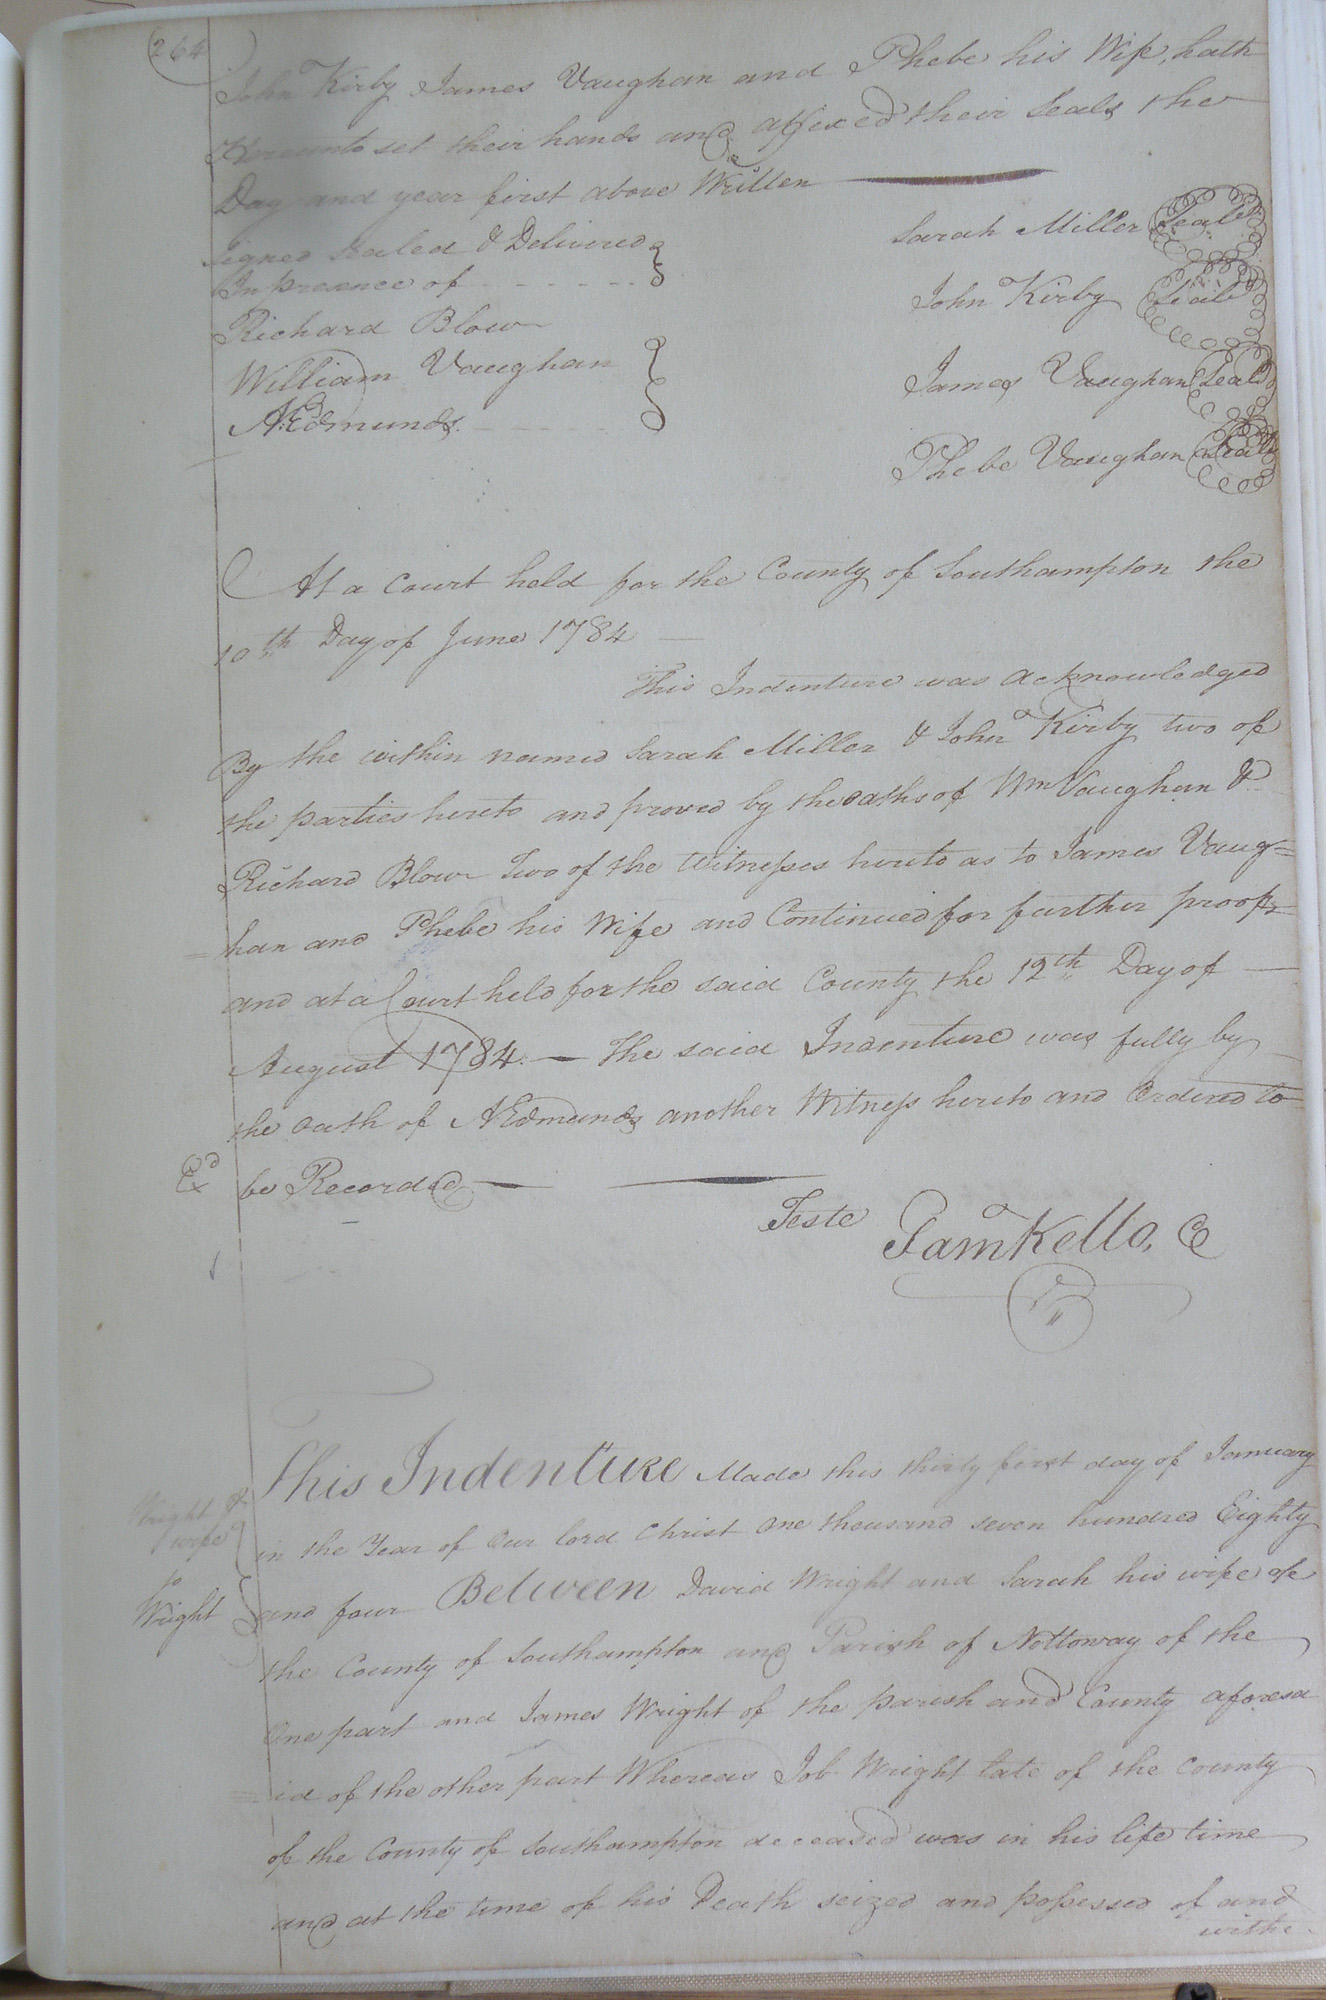 264
John Kirby James Vaughan and Phebe his Wife, hath
Hereunto set their hands and affixed their Seals the
Day and year first above Written
Signed Sealed & Delivered
In presence of
Richard Blow
William Vaughan
A. Edmunds
Sarah Miller Seal
John Kirby Seal
James Vaughan Seal
Phebe Vaughan Seal
At a Court held for the County of Southampton the
10th Day of June 1784
This Indenture was acknowledged
By the within named Sarah Miller & John Kirby two of
the parties hereto and proved by the oaths of Wm Vaughan &
Richard Blow Two of the Witnesses hereto as to James Vaug=
=han and Phebe his Wife and Continued for further proof,
and at a Court held for the said County the 12th Day of
August 1784. — The said Indenture was fully by
the Oath of A Edmunds another Witness hereto and Ordered to
Exd be Recorded
Teste Sam Kello, C
This Indenture Made this thirty first day of January
in the Year of Our lord Christ One thousand seven hundred Eighty
and four Between David Wright and Sarah his wife of
the County of Southampton and Parish of Nottoway of the
One part and James Wright of the parish and County aforesa
=id of the other part Whereas Job Wright late of the County
of the County of Southampton deceased was in his life time
and at the time of his Death seized and possessed of and
withe
Wright &
wife
to
Wright